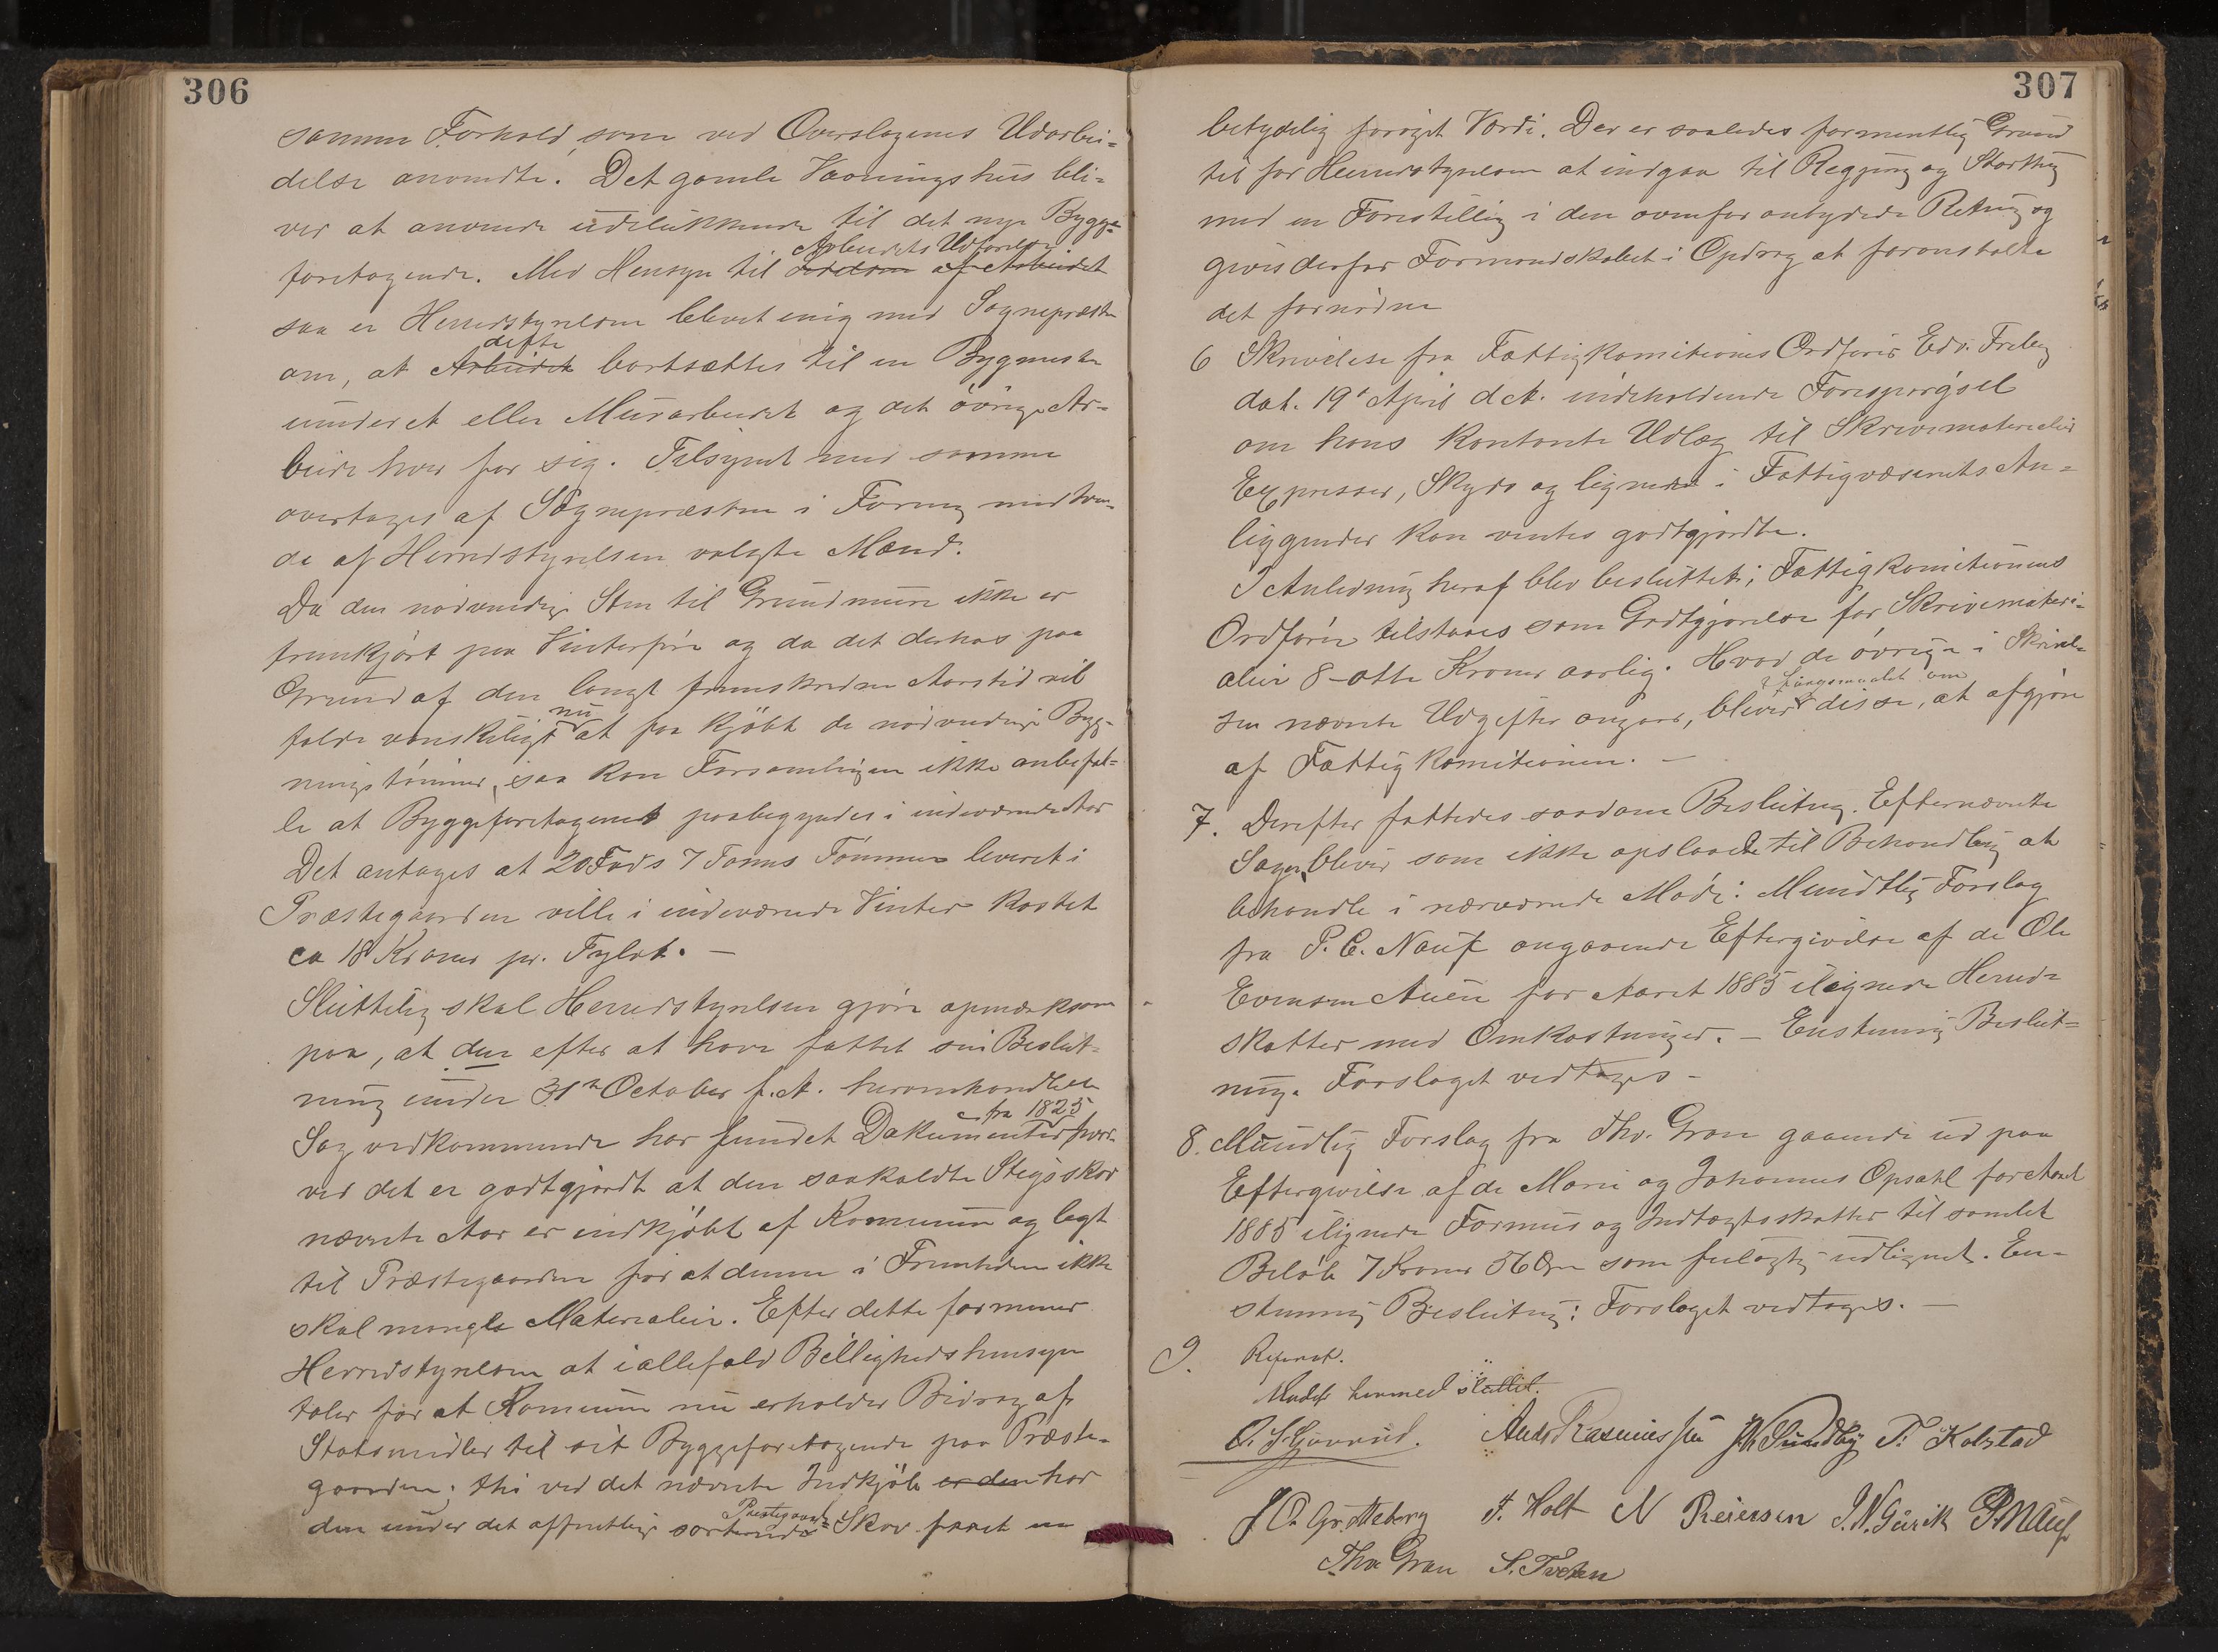 306
samme Forhold, som ved Overslagenes Udarbei=
delse anvendte. Det gamle Vaaningshus bli=
ver at anvende udelukkende til det nye Bygge=
Arbeidets Udførelse
foretagende. Med Hensyn til Ledelsen af Arbeidet
saa er Herredstyrelsen blevet enig med Sognepræsten
dette
om, at Arbeidet bortsættes til en Bygmester
underet eller Murarbeidet og det øvrige Ar=
beide hver for sig. Tilsynet med samme
overtages af Sognepræsten i Forening med tven=
de af Herredstyrelsen valgte Mænd.
Da den nødvendige Sten til Grundmure ikke er
fremkjørt paa Vinterføre og da det derhos paa
Grund af den langt fremskredne Aarstid vil
nu
falde vanskeligt at faa kjøbt de nødvendige Byg=
ningstømmer, saa kan Forsamlingen ikke anbefal=
le at Byggeforetagenet paabegyndes i indeværende Aar
Det antages at 20 Fods 7 Toms Tømmer leveret i
Præstegaarden ville i indeværende Vinter kostet
ca 18 Kroner pr. Tylvt. —
Sluttelig skal Herredstyrelsen gjøre opmærksom
paa, at den efter at have fattet sin Beslut=
ning under 31te October f. A. heromhandlede
fra 1825
Sag vedkommende har fundet Dokumenter hvor=
ved det er godtgjordt at den saakaldte Stigsskov
nævnte Aar er indkjøbt af Kommunen og lagt
til Præstegaarden for at denne i Fremtiden ikke
skal mangle Materialier. Efter dette formener
Herredstyrelsen at iallefald Billighedshensyn
taler for at Kommunen nu erholder Bidrag af
Statsmidler til sit Byggeforetagende paa Præste=
gaarden; thi ved det nævnte Indkjøb er den har
Præstegaards
den under det offentlige sorterende Skov faaet en
307
betydelig forøget Værdi. Der er saaledes formentlig Grund
til for Herredstyrelsen at indgaa til Regjering og Storthing
med en Forestilling i den ovenfor antydede Retning og
gives derfor Formandskabet i Opdrag at foranstalte
det fornødne
6 Skrivelse fra Fattigkomitionens Ordfører Edv. Freberg
dat. 19de April d. A. indeholdende Forespørgsel
om hans kontante Udlæg til Skrivematerialier
Expresser, Skyds og lignende i Fattigvæsenets An=
liggender kan ventes godtgjordte.
I Anledning heraf blev besluttet: Fattigkomitionens
Ordfører tilstaaes som Godtgjørelse for Skrivemateri=
alier 8-otte Kroner aarlig. Hvad de øvrige i Skrivel=
Spørgsmaalet om
sen nævnte Udgifter angaar, bliver disse, at afgjøre
af Fattigkomitionen. —
7. Derefter fattedes saadan Beslutning. Efternævnte
Sager bliver som ikke opslaaede til Behandling at
behandle i nærværende Møde: Mundtlig Forslag
fra P. C. Nauf angaaende Eftergivelse af de Ole
Evensen Auen for Aaret 1885 ilignede Herreds=
skatter med Omkostninger. — Enstemmig Beslut=
ning. Forslaget vedtages —
8. Mundtlig Forslag fra Thv. Gran gaaende ud paa
Eftergivelse af de Marie og Johannes Opsahl for Aaret
1885 ilignede Formues og Indtægtsskatter til samlet
Beløb 7 Kroner 56 Øre som feilagtig udlignet. En=
stemmig Beslutning: Forslaget vedtages. —
9. Referat.
Mødet hermed sluttet.
Anders Rasmussen Sundby T. Kolstad
Gretteberg T. Holt N Reiersen J. N. Gurik P. Nauf
Thv Gran S. Tveten